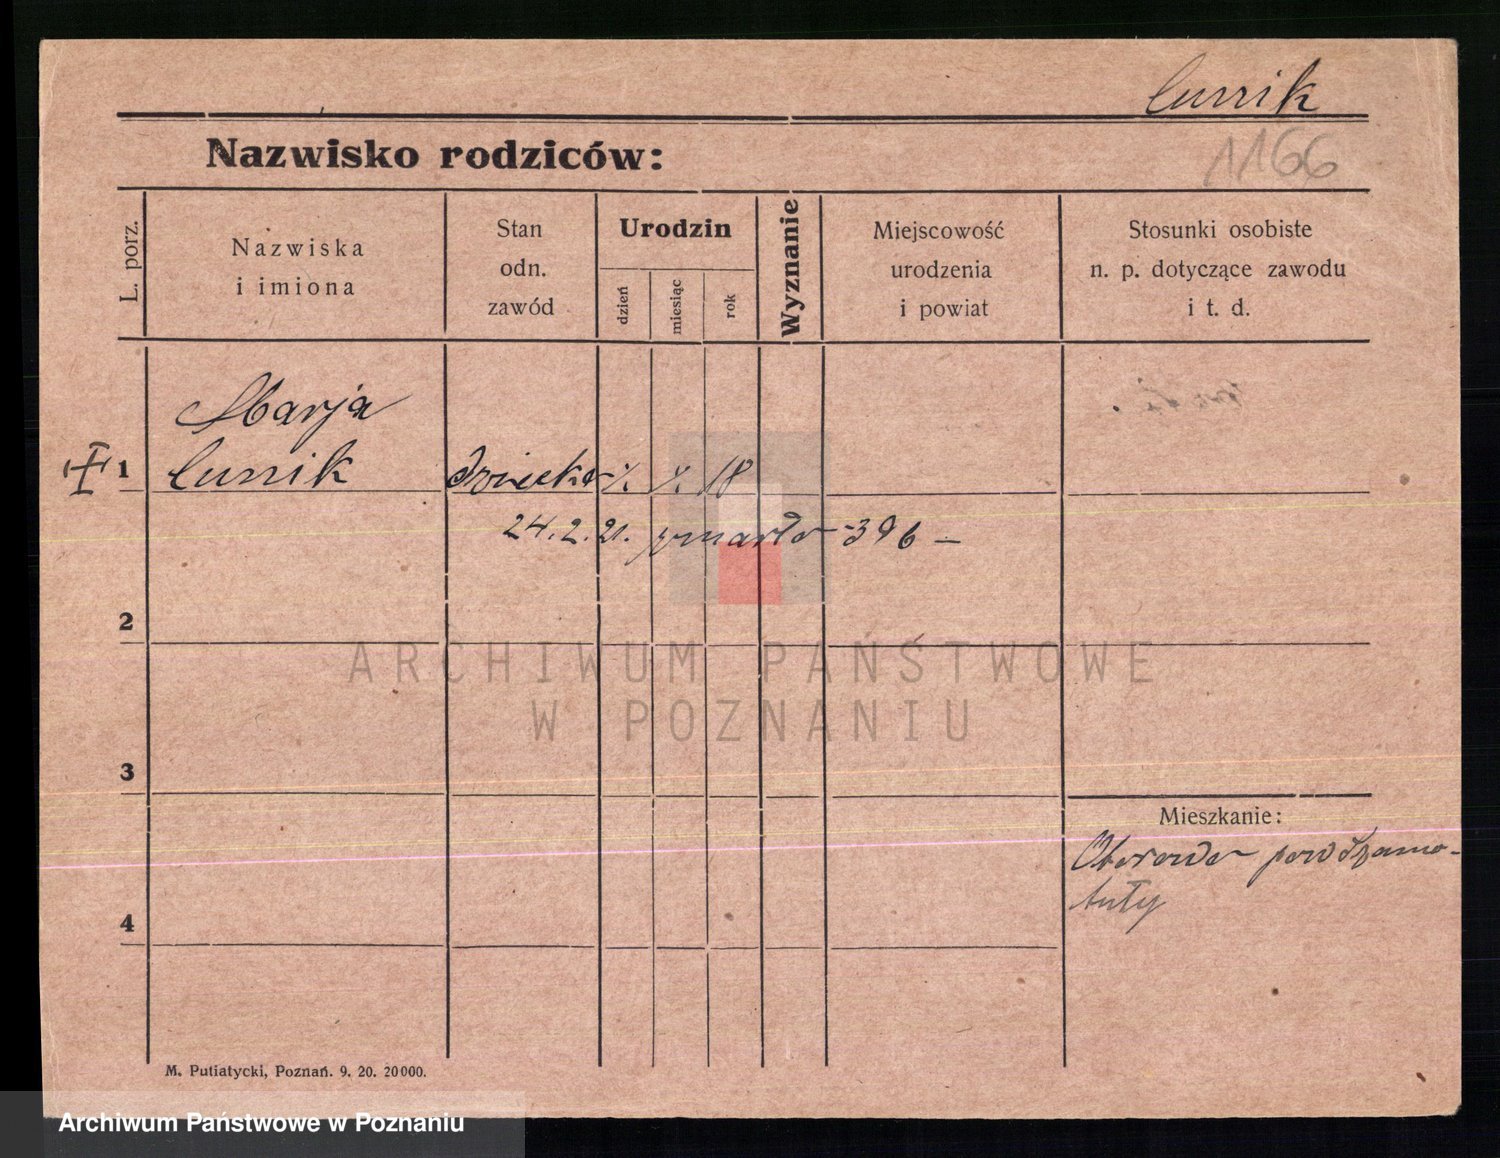 Cunik
1166
Nazwisko rodziców:
L. porz.
Nazwiska
i imiona
Stan
odn.
zawód
Urodzin
dzień
miesiąc
rok
Wyznanie
Miejscowość
urodzenia
i powiat
Stosunki osobiste
n. p. dotyczące zawodu
i t. d.
Marja
1 Cunik 18
24.2.21. zmarła 396 –
2
3
4
Mieszkanie:
pow Szamo-
tuły
M. Putiatycki, Poznań. 9. 20. 20000.
ARCHIWUM PAŃSTWOWE
W POZNANIU
Archiwum Państwowe w Poznaniu